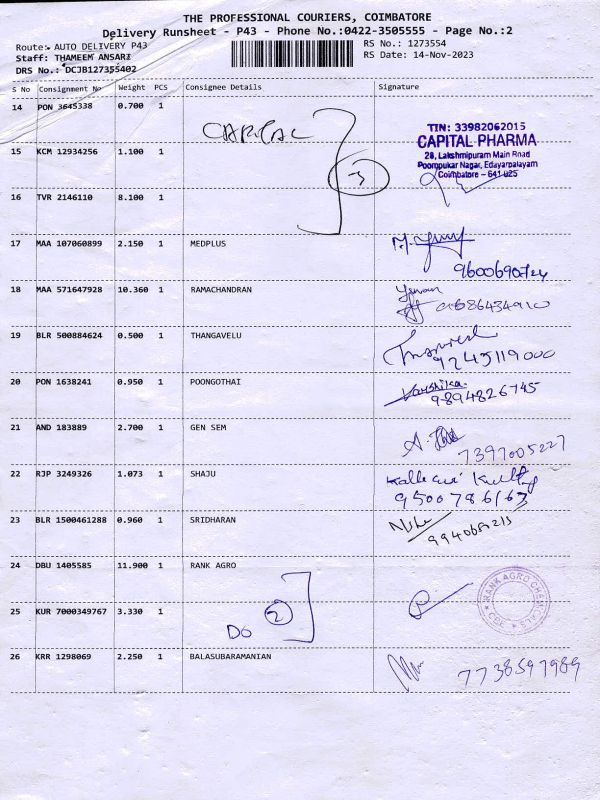 THE PROFESSIONAL COURIERS, COIMBATORE
Delivery Runsheet - P43 - Phone No.:0422-3505555 - Page No.:2
Route: AUTO DELIVERY P43
RS No.: 1273554
Staff: THAMEEM ANSARI
RS Date: 14-Nov-2023
DRS No.: DCJB127355402
S No Consignment No Weight PCS Consignee Details Signature
14 PON 3645338 0.700 1
CAPITAL
TIN: 33982062015
CAPITAL PHARMA
28, Lakshmipuram Main Road
Poompukar Nagar, Edayarpalayam
Coimbatore - 641 025
15 KCM 12934256 1.100 1
3
16 TVR 2146110 8.100 1
17 MAA 107060899 2.150 1 MEDPLUS
18 MAA 571647928 10.360 1 RAMACHANDRAN
19 BLR 500884624 0.500 1 THANGAVELU
9245119000
20 PON 1638241 0.950 1 POONGOTHAI
Varshika
9894826745
21 AND 183889 2.700 1 GEN SEM
7397005227
22 RJP 3249326 1.073 1 SHAJU
9500786163
23 BLR 1500461288 0.960 1 SRIDHARAN
24 DBU 1405585 11.900 1 RANK AGRO
RANK AGRO CHEMICALS
CBE
25 KUR 7000349767 3.330 1
DO 2
26 KRR 1298069 2.250 1 BALASUBARAMANIAN
7738597989